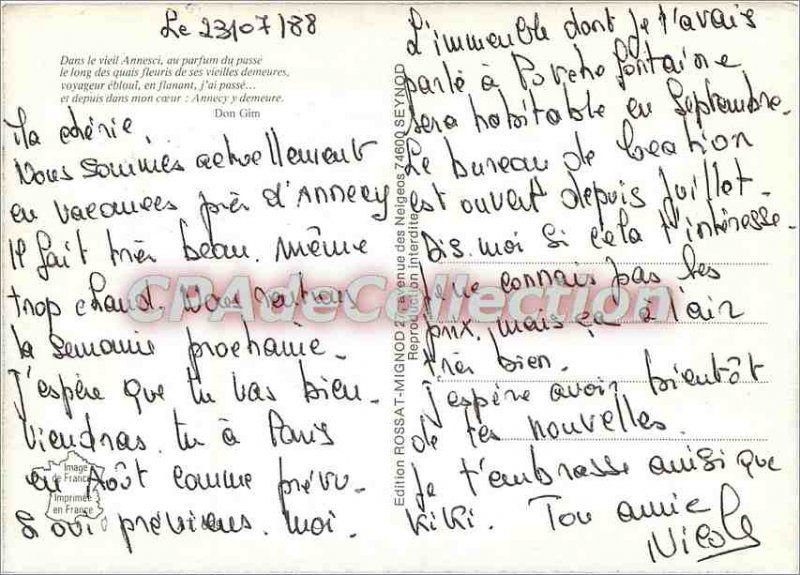 Le 23/07/88
Dans le vieil Annesci, au parfum du passé
le long des quais fleuris de ses vieilles demeures,
voyageur ébloui, en flanant, j'ai passé...
et depuis dans mon cœur : Annecy y demeure.
Don Gim
Ma chérie,
Nous sommes actuellement
en vacances près d'ANNECY
Il fait très beau. même
trop chaud. Nous rentrons
la semaine prochaine.
J'espère que tu vas bien.
Viendras. tu à Paris
en Août comme prévu.
Si oui préviens. moi.
Image
de France
Imprimée
en France
Edition ROSSAT-MIGNOD avenue des Neigeos 74600 SEYNOD
Reproduction interdite
L'immeuble dont je t'avais
parlé à fontaine
sera habitable en Septembre.
Le bureau de location
est ouvert depuis Juillet.
Dis. moi si cela t'intéresse.
Je ne connais pas les
prix. mais ça à l'air
très bien.
J'espère avoir bientôt
de tes nouvelles.
Je t'embrasse ainsi que
KiKi. Ton amie
Nicole
CPAdeCollection